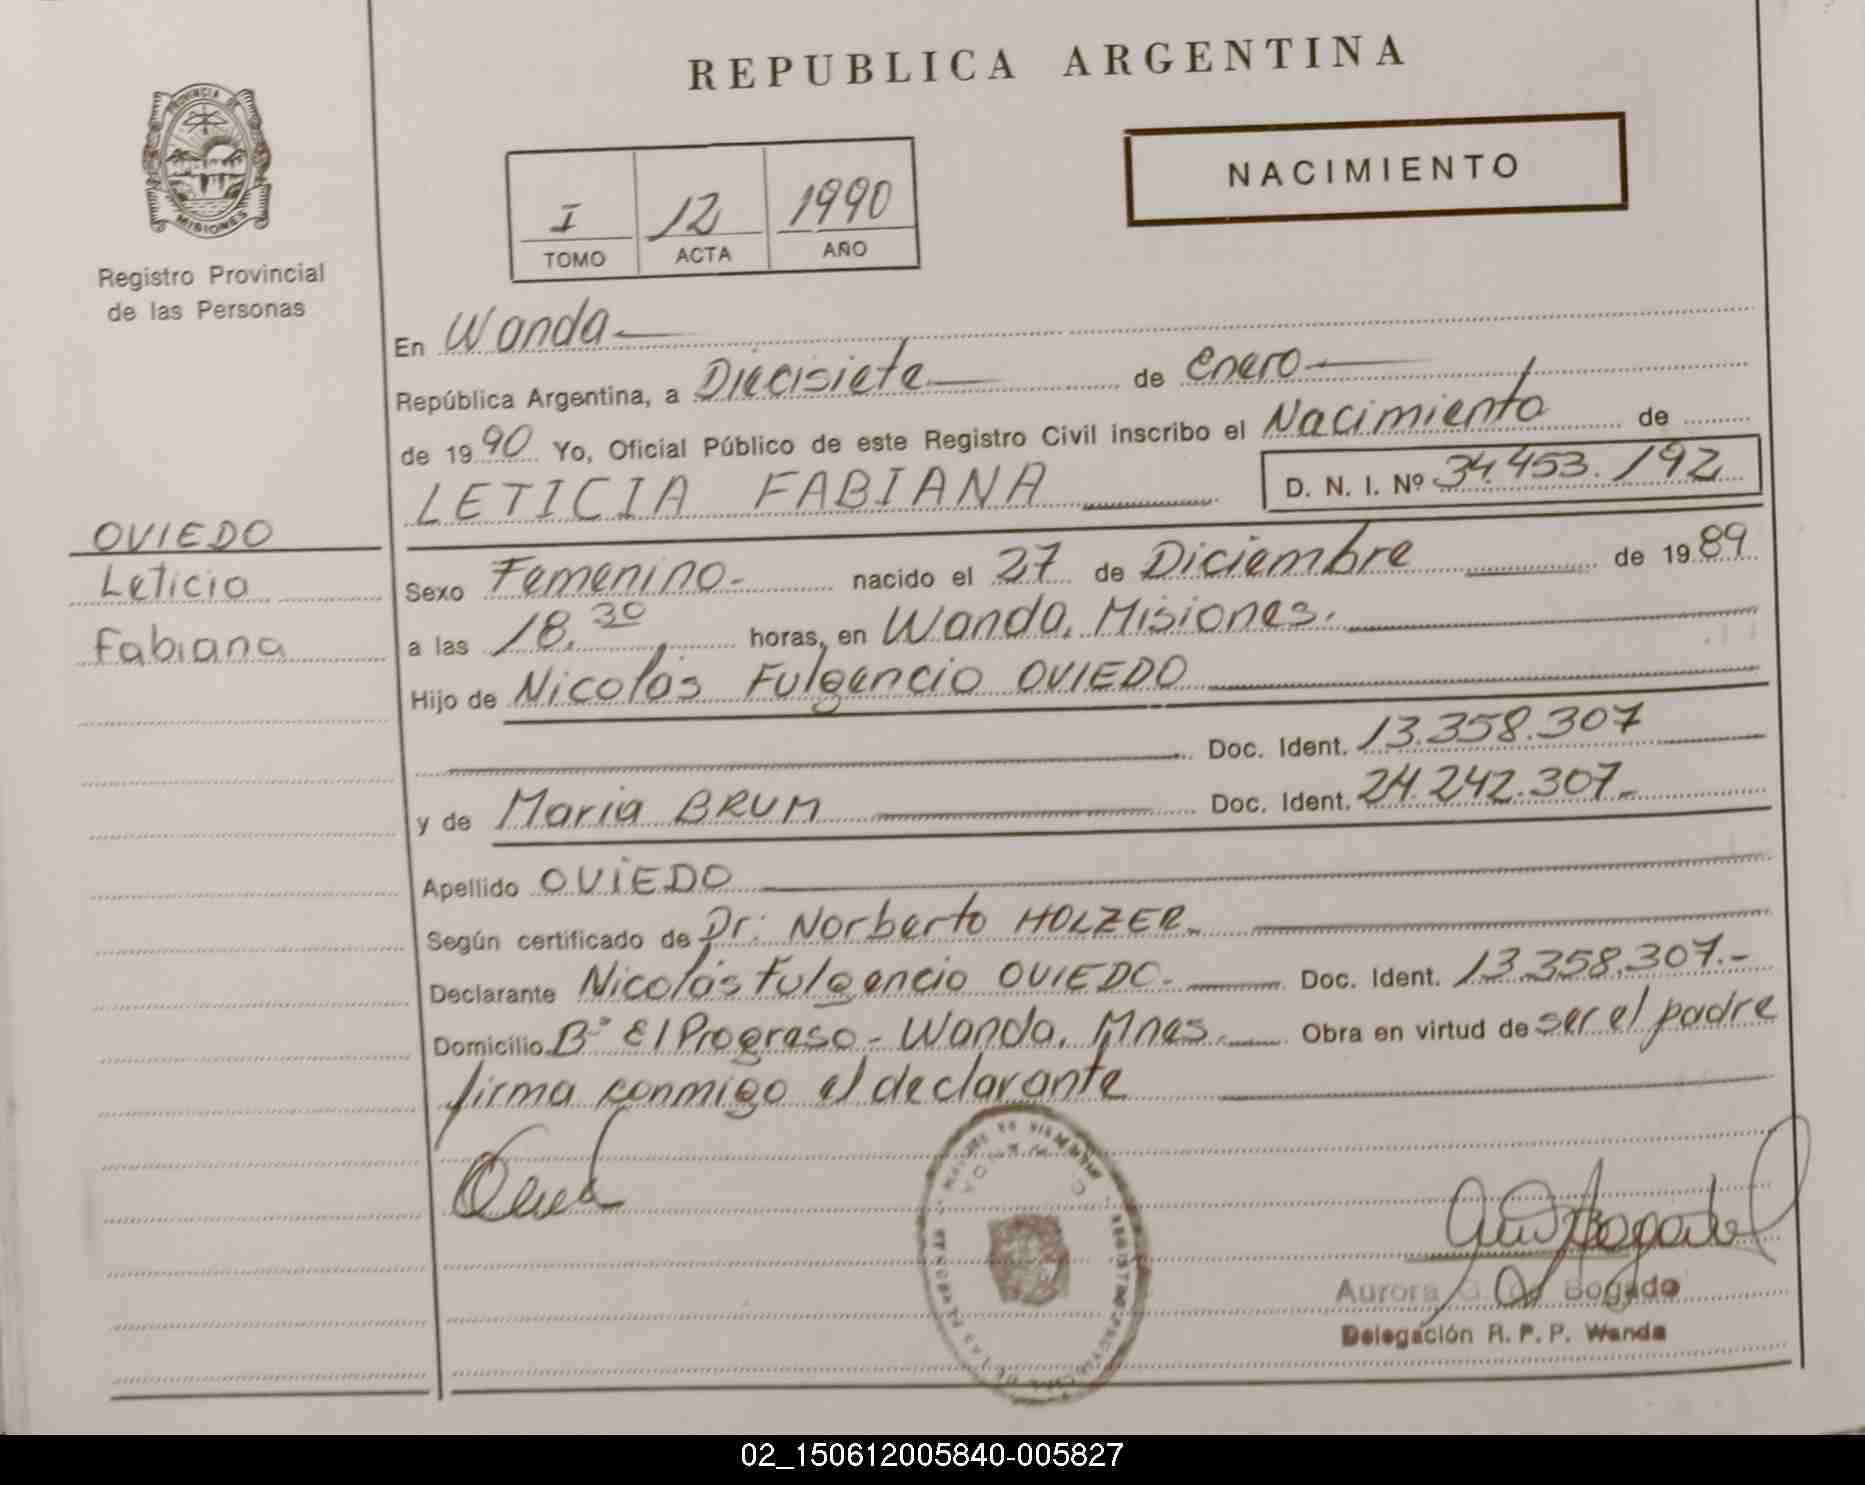 REPUBLICA ARGENTINA
PROVINCIA DE
MISIONES
Registro Provincial
de las Personas
NACIMIENTO
I 12 1990
TOMO ACTA AÑO
En Wanda
República Argentina, a Diecisiete de enero
de 1990 Yo, Oficial Público de este Registro Civil inscribo el Nacimiento de
LETICIA FABIANA D. N. I. Nº 34.453.192
OVIEDO
Leticia
Fabiana
Sexo Femenino.- nacido el 27 de Diciembre de 1989
a las 18.30 horas, en Wanda, Misiones.
Hijo de Nicolás Fulgencio OVIEDO
Doc. Ident. 13.358.307
y de Maria BRUM Doc. Ident. 24.242.307.-
Apellido OVIEDO
Según certificado de Dr. Norberto HOLZER.
Declarante Nicolás Fulgencio OVIEDO.- Doc. Ident. 13.358.307.-
Domicilio Bº El Progreso - Wanda, Mnes. Obra en virtud de ser el padre
firma conmigo el declarante
Aurora G. de Bogado
Delegación R. P. P. Wanda
02_150612005840-005827